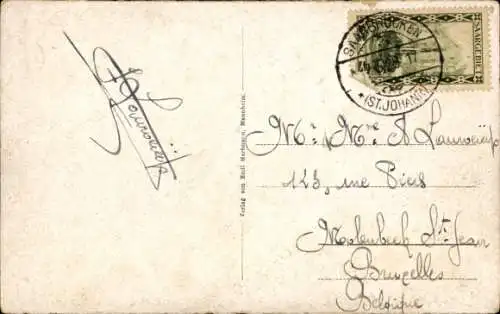 SAARBRÜCKEN
* (ST. JOHANN)
SAARGEBIET
Verlag von Emil Hartmann, Mannheim.
Mr, Mme A Lauwaijs
123, rue Piers
Molenbeek St-Jean
Bruxelles
Belgique